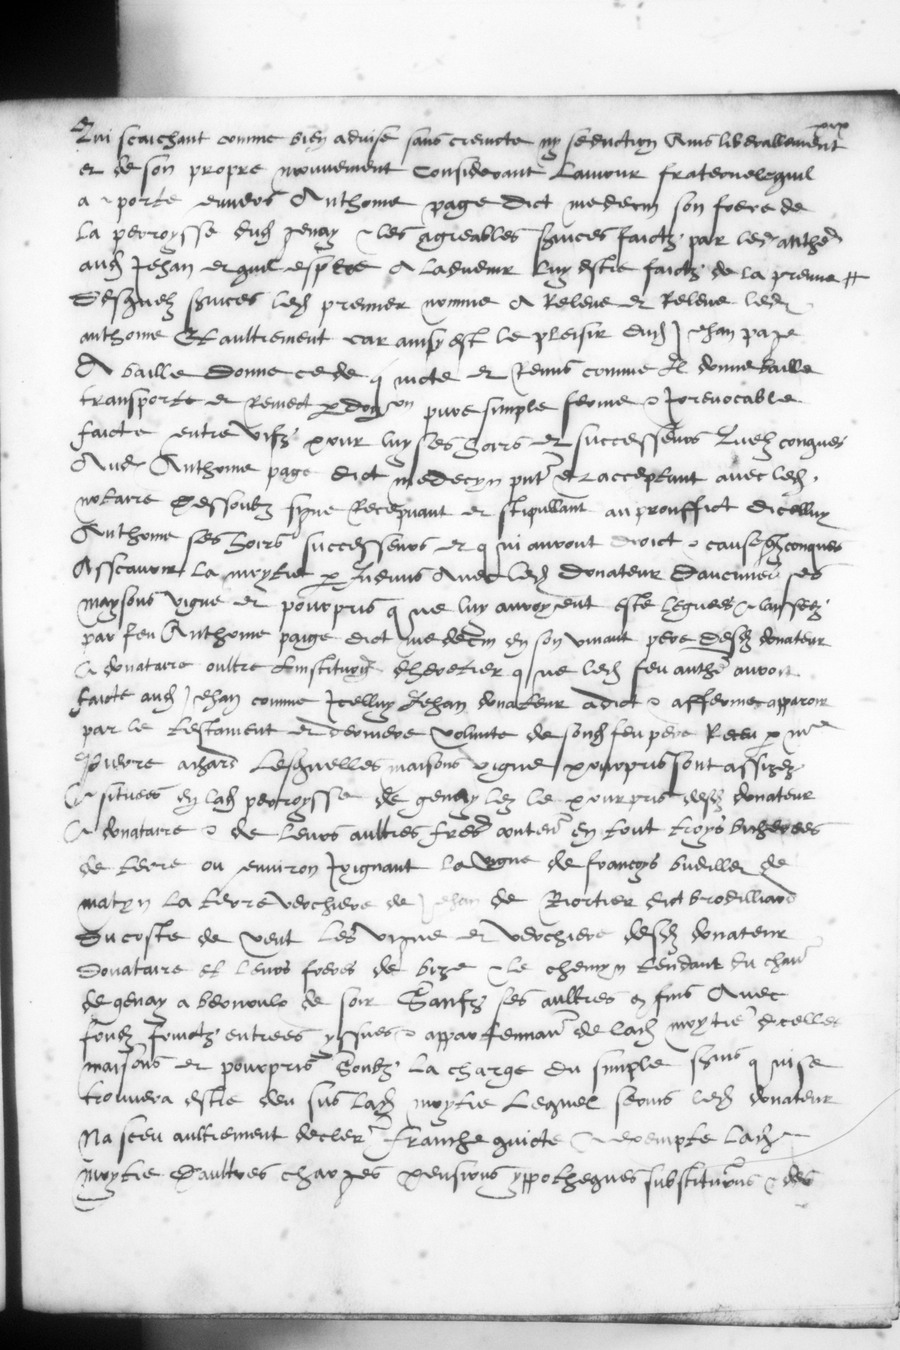 xix
Qui scaichant comme bien advise sans craincte ny seduction Ains liberallement
et de son propre mouvement Considerant Lamour fraternelequil
a porte envers Anthoine page dict medecin son frere de
La perroysse dudt genay & les agreables services faictz par led anthe
audt Jehan et quil espere A Ladvenir luy estre faictz de la preuve
Desquelz services ledt premier nomme A Releve et Releve led
anthoine Et aultrement car ainsy est le pleisir dudt Jehan page
A baille donne cede quicte et Remis comme Il donne baille
transporte et Remect par donon pure simple ferme & Irrevocable
faicte entre vifz pour luy ses hoirs et successeurs Quelzconques
Aud Anthoine page dict medecyn pnt et acceptant avec ledt
notaire dessoubz signe Recepvant et stipullant au prouffict dicelluy
Anthoine ses hoirs successeurs et qui auront droict & cause qzconques
Asscavoir La moytie par Indivis Avec ledt donateur Daucunes ses
maysons vigne et pourpris que luy auroyent este legues & laissez
par feu Anthoine paige dict medecin en son vivant pere desdt donateur
& donataire oultre Linstitution dheretier que ledt feu anthe avoit
faicte audt Jehan comme Icelluy Jehan donateur a dict & afferme apparoir
par le testament et derniere volunte de sondt feu pere Receu par me
Pierre achard Lesquelles maisons vigne pourpris sont assizez
& situees en ladt perroysse de genay lez le pourpris desdt donateur
& donataire & de leurs aultres freres conten en tout troys bicherees
de terre ou environ Joignant la vigne de francoys budillet de
matyn La terre verchiere de Jehan de Riortier dict brodilliard
Du coste de vent Les vigne et verchiere desdt donateur
Donataire et leurs freres de bize & le chemyn tendant du chau
de genay a bernoulx de soir Saufz ses aultres confins Avec
fondz fruictz entrees yssues & appartenan de ladt moytie dicelles
maisons et pourpris Soubz La charge du simple servis qui se
trouvera estre deu sus Ladt moytie Lequel servis ledt donateur
Na sceu aultrement decler franche quicte & exempte ladt
moytie Daultres charges pensions yppotheques substitutions & des